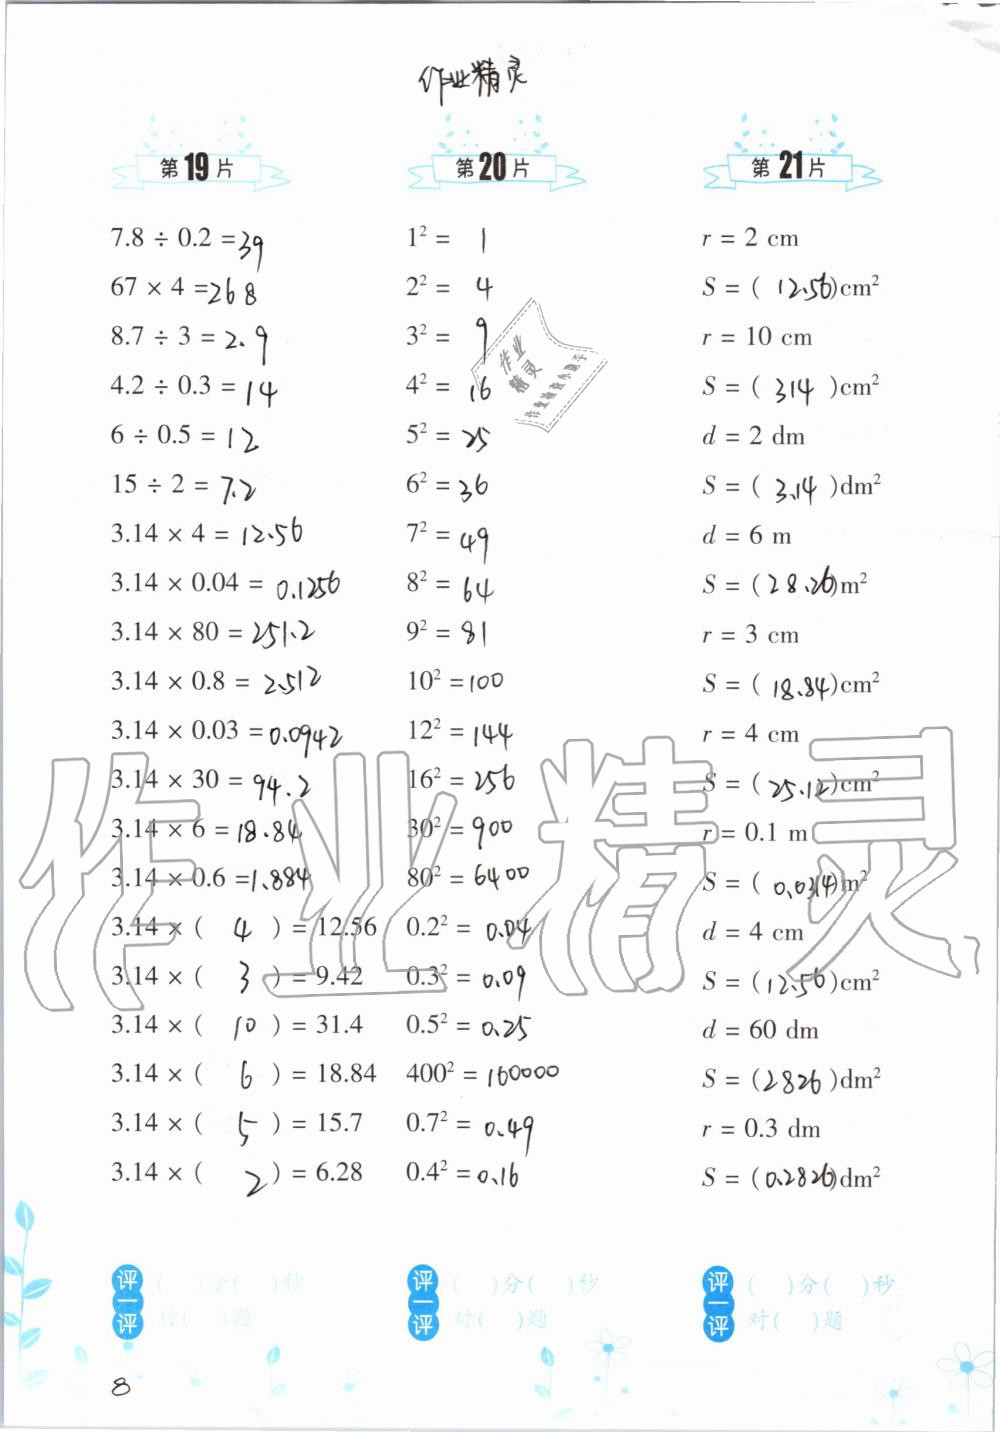 作业精灵
第19片
7.8 ÷ 0.2 = 39
67 × 4 = 268
8.7 ÷ 3 = 2.9
4.2 ÷ 0.3 = 14
6 ÷ 0.5 = 12
15 ÷ 2 = 7.2
3.14 × 4 = 12.56
3.14 × 0.04 = 0.1256
3.14 × 80 = 251.2
3.14 × 0.8 = 2.512
3.14 × 0.03 = 0.0942
3.14 × 30 = 94.2
3.14 × 6 = 18.84
3.14 × 0.6 = 1.884
3.14 × ( 4 ) = 12.56
3.14 × ( 3 ) = 9.42
3.14 × ( 10 ) = 31.4
3.14 × ( 6 ) = 18.84
3.14 × ( 5 ) = 15.7
3.14 × ( 2 ) = 6.28
评一评
( )分( )秒
对( )题
第20片
1² = 1
2² = 4
3² = 9
4² = 16
5² = 25
6² = 36
7² = 49
8² = 64
9² = 81
10² = 100
12² = 144
16² = 256
30² = 900
80² = 6400
0.2² = 0.04
0.3² = 0.09
0.5² = 0.25
400² = 160000
0.7² = 0.49
0.4² = 0.16
评一评
( )分( )秒
对( )题
第21片
r = 2 cm
S = ( 12.56 )cm²
r = 10 cm
S = ( 314 )cm²
d = 2 dm
S = ( 3.14 )dm²
d = 6 m
S = ( 28.26 )m²
r = 3 cm
S = ( 18.84 )cm²
r = 4 cm
S = ( 25.12 )cm²
r = 0.1 m
S = ( 0.0314 )m²
d = 4 cm
S = ( 12.56 )cm²
d = 60 dm
S = ( 2826 )dm²
r = 0.3 dm
S = ( 0.2826 )dm²
评一评
( )分( )秒
对( )题
作业
精灵
作业精灵
8